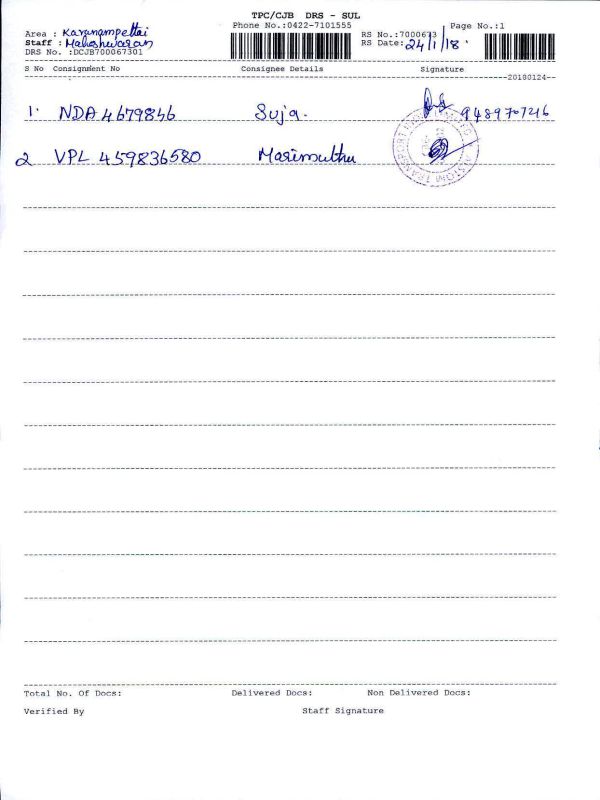 TPC/CJB DRS - SUL
Phone No.:0422-7101555 Page No.:1
Area : Karanampettai RS No.:7000673
Staff : Maheshwaran RS Date: 24/1/18.
DRS No. :DCJB700067301
S No Consignment No Consignee Details Signature
20180124
1. NDA 4679846 Suja. 9489707216
2 VPL 459836580 Marimuthu
TRANSPORT
Total No. Of Docs: Delivered Docs: Non Delivered Docs:
Verified By Staff Signature